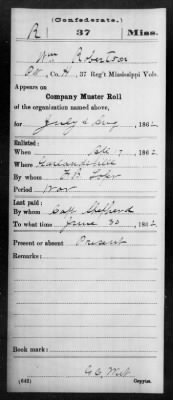 (Confederate.)
R 37 Miss.
Wm Robertson
Co. H, 37 Reg't Mississippi Vols.
Appears on
Company Muster Roll
of the organization named above,
for July & Aug, 1862.
Enlisted:
When 7, 1862.
Where Garlandville
By whom
Period War
Last paid:
By whom Capt Shepherd
To what time June 30, 1862.
Present or absent Present
Remarks:
Book mark:
(642) Copyist.